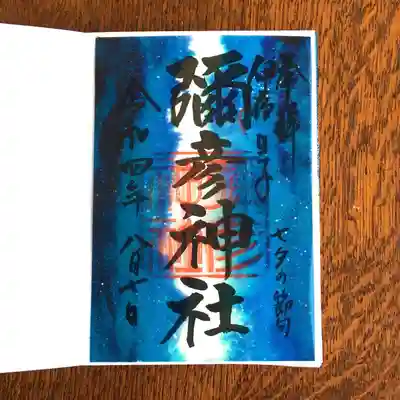 奉拝
伊夜日子
彌彦神社
七夕の節句
令和四年 八月七日